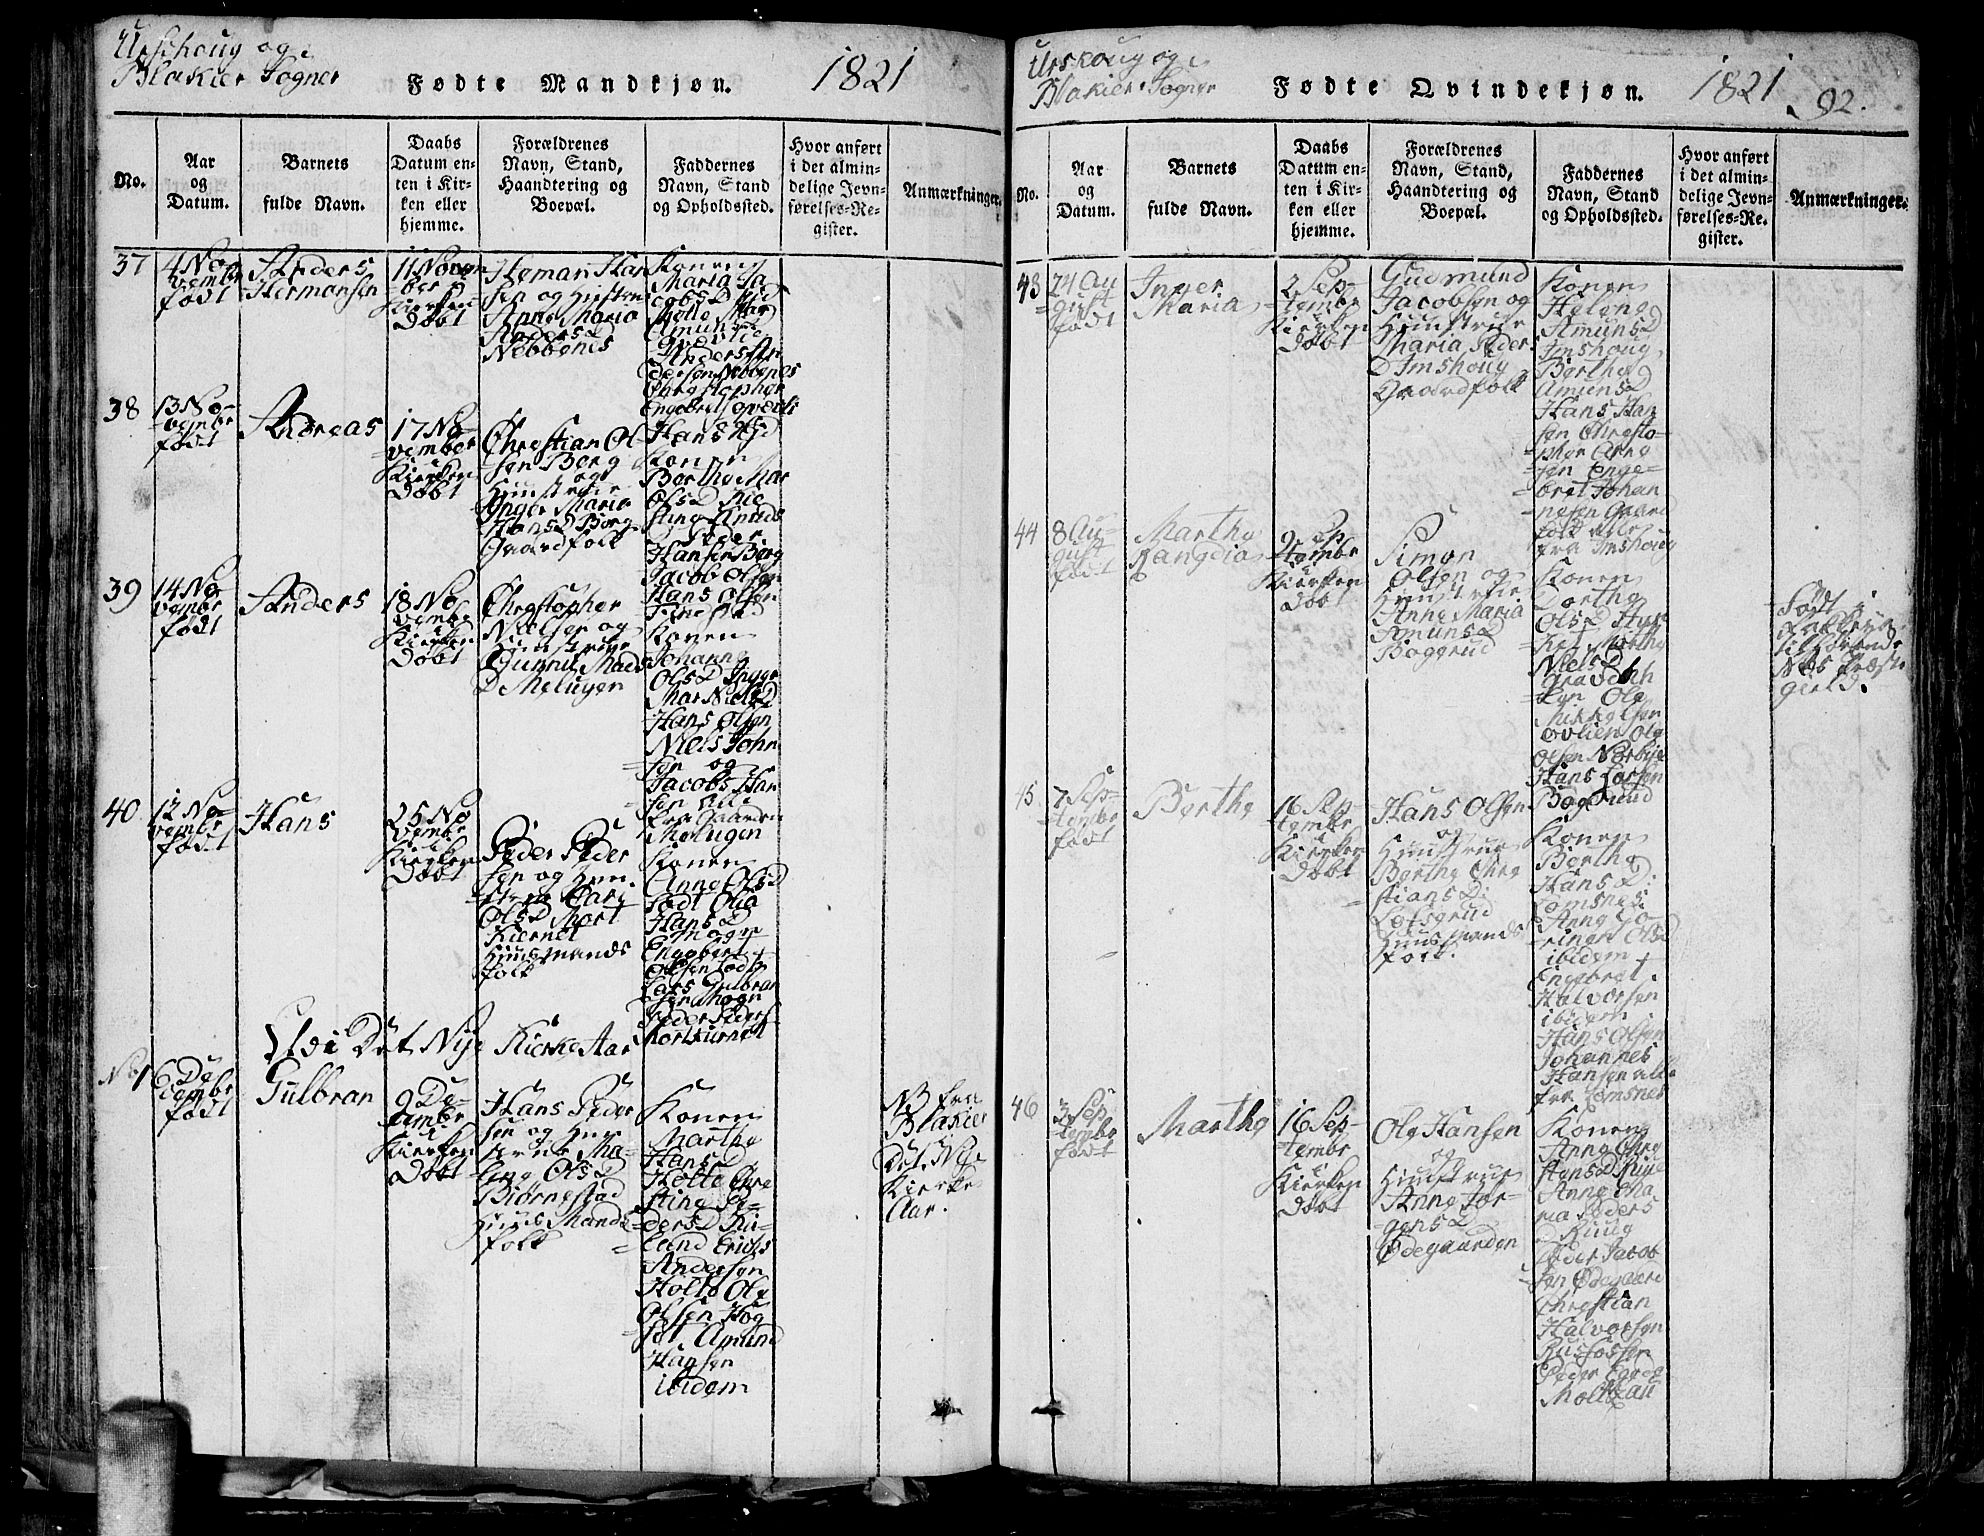 Urschoug og
Blakier Sogner
Fødte Mandkjøn.
1821
No.
Aar
og
Datum.
Barnets
fulde Navn.
Daabs
Datum en-
ten i Kir-
ken eller
hjemme.
Forældrenes
Navn, Stand,
Haandtering og
Boepæl.
Faddernes
Navn, Stand
og Opholdssted.
Hvor anført
i det almin-
delige Jevn-
førelses-Re-
gister.
Anmærkninger.
37
4 No-
vembr
født
Anders
Hermansen
11 Novem
ber i
Kierken
Døbt
Heman Han
sen og Hustru
Anne Maria
Anders D
Nebbenes
Konen
Maria Ja
cobs D
Amund
Anders An
dersen Nebbenes
Christopher
Engebretsen
38
13 No-
vembr
født
Andreas
17 No-
vember
i
Kierken
Døbt
Christian Ol-
sen Berg
og
Huustrue
Inger Maria
Hans D Berg
Gaardfolk
Hans
Konen
Berthe Mar
Ols D
Peder
Hansen Berg
Jacob Olsen
Hans Olsen
39
14 No-
vembr
født
Anders
18 No
vembr
i
Kierken
Døbt
Christopher
Nielsen og
Huustrue
Gunnil Mads
D Melugen
Konen
Johanne
Ols D Inger
Mar Niels D
Hans Olsen
Niels John
sen og
Jacobs Han
sen alle
fra Gaarden
Melugen
40
12 No-
vembr
født
Hans
25 No
vembr
i
Kierken
Døbt
Peder Peder
sen og Huu-
strue Kari
Ols D Mort
Kiernet
Huusmands
folk
Konen
Anne Ols D
Hans D
Mogn
Engebert
Olsen
Lars Gulbran
sen Mogn
Peder Peders
Mortkurnet
Udi Det Nÿe Kierke Aar
No 1
6 De
cembr
født
Gulbran
9 De-
cembr
i
Kierken
Døbt
Hans Peder
sen og Huu
strue Ma-
lene Ols D
Biørnestad
Huus Mands
folk
Konen
Marthe
Hans D
Holte Chre
stine Pe-
ders D Ru-
lund Erichs
Andersen
Holte Ole
Olsen Hog
set Amund
Hansen
ibidem
NB fra
Blakier
Det Nÿe
Kierke
Aar.
Urskoug og
Blakier Sogner
Fødte Qvindekjøn.
1821
92.
No.
Aar
og
Datum.
Barnets
fulde Navn.
Daabs
Datum en-
ten i Kir-
ken eller
hjemme.
Forældrenes
Navn, Stand,
Haandtering og
Boepæl.
Faddernes
Navn, Stand
og Opholdssted.
Hvor anført
i det almin-
delige Jevn-
førelses-Re-
gister.
Anmærkninger.
43
24 Au
gust
født
Inger
Maria
2 Sep-
tembr
i
Kierken
Døbt
Gudmund
Jacobsen og
Huustrue
Maria Peder
D Imshoug
Gaardfolk
Konen
Helene
Amuns D
Imshoug
Berthe
Amuns D
Hans Han
sen Christo-
pher Arne
sen Enge-
bret Johan
nesen Gaard
folk alle
fra Imshoug
44
8 Au-
gust
født
Marthe
Rangdia
9 Sep
tembr
i
Kierken
Døbt
Simon
Olsen og
Huustrue
Anne Maria
Amuns D
Baggrud
Konen
Dorthe
Ols D
Marthe
Niels D
Ole
Mikkelsen
Ovlien Ole
Olsen Nordbye
Hans Larsen
Bagerud
Født i
til
Næs Præste
gield.
45.
7 Sep-
tembr
født
Berthe
16 Sep-
tembr
i
Kierken
Døbt
Hans Olsen
og
Huustrue
Berthe Chre
stians D:
Huusmands
folk.
Konen
Berthe
Hans D:
Lomsnes
Anne Ca-
rine Ols D
ibidem
Engebret
Halvorsen
ibidem
Hans Olsen
Johannes
Hansen alle
fra Lomsnes
46
3 Sep-
tembr
født
Marthe
16 Sep-
tembr
i
Kierken
Døbt
Ole Hansen
og
Huustrue
Anne Jør-
gens D
Ødegaarden
Konen
Anne Chre
stens D
Anne Ma
ria Peders
Ruug
Peder Jacob
sen Ødegaard
Christian
Halvorsen
Peder